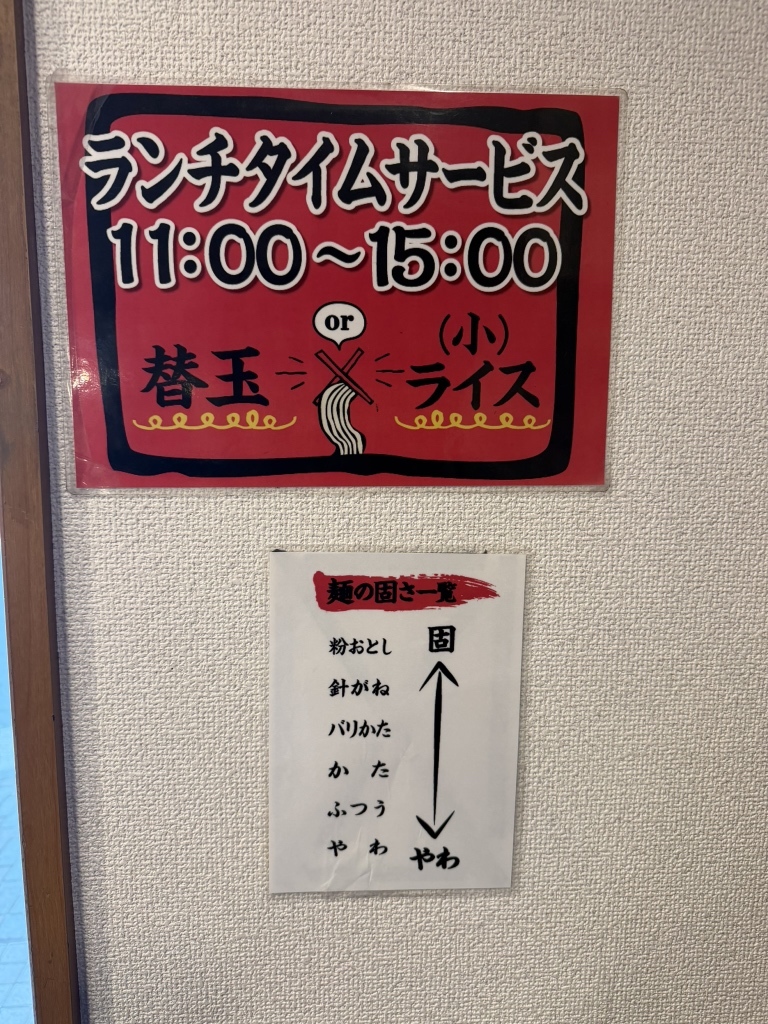 ランチタイムサービス
11:00～15:00
or
替玉
(小)
ライス
麺の固さ一覧
固
粉おとし
針がね
バリかた
かた
ふつう
やわ
やわ